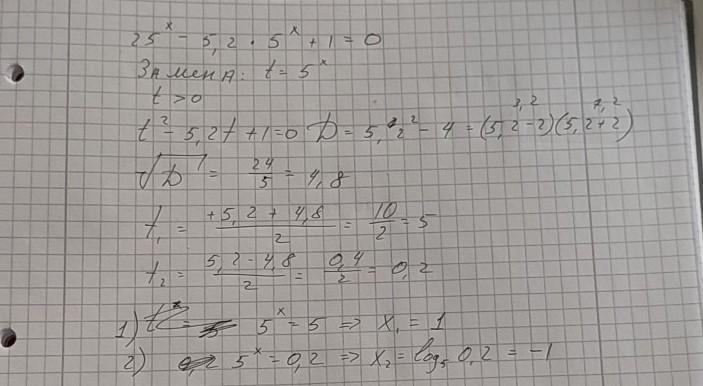 25^x - 5,2 · 5^x + 1 = 0
Замена: t = 5^x
t > 0
3,2 7,2
t² - 5,2t + 1 = 0 D = 5,2² - 4 = (5,2 - 2)(5,2 + 2)
√D = 24/5 = 4,8
t₁ = (+5,2 + 4,8)/2 = 10/2 = 5
t₂ = (5,2 - 4,8)/2 = 0,4/2 = 0,2
1) 5^x = 5 => x₁ = 1
2) 5^x = 0,2 => x₂ = log₅ 0,2 = -1